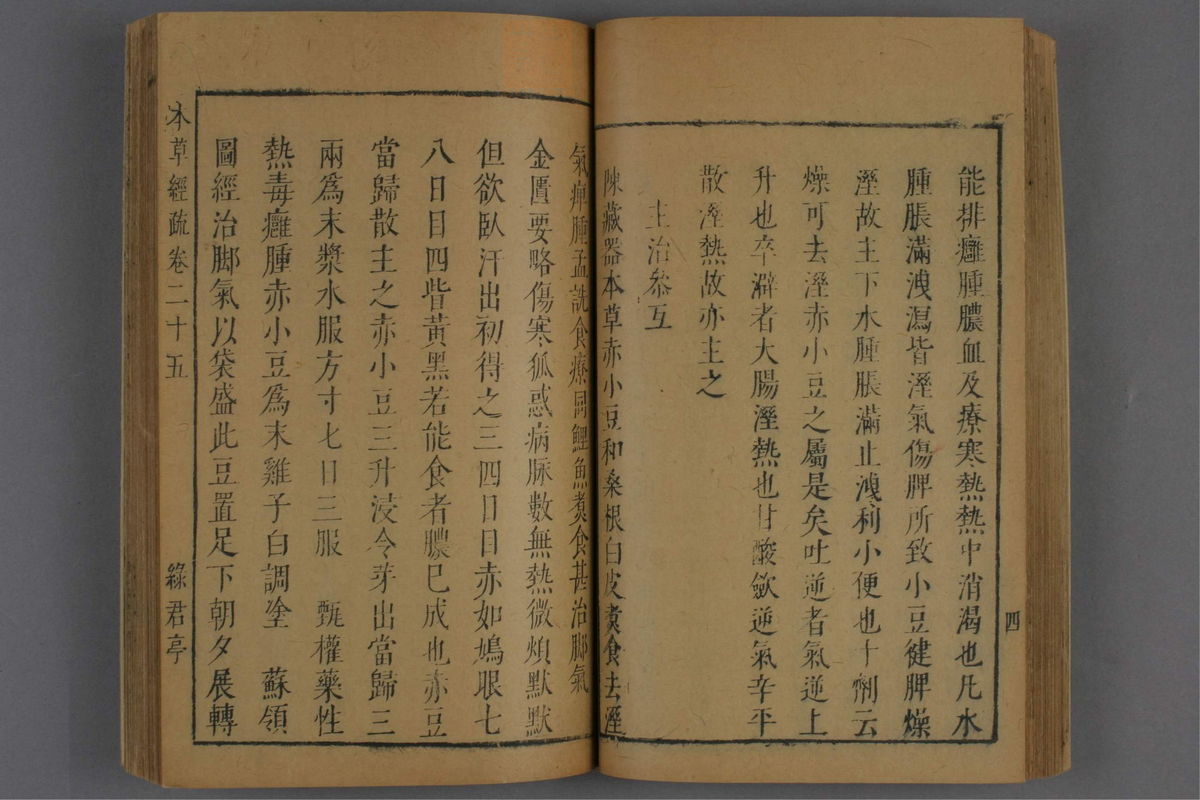 能排癰腫膿血及療寒熱熱中消渴也凡水
腫脹滿洩瀉皆溼氣傷脾所致小豆健脾燥
溼故主下水腫脹滿止洩利小便也十劑云
燥可去溼赤小豆之屬是矣吐逆者氣逆上
升也卒澼者大腸溼熱也甘酸斂逆氣辛平
散溼熱故亦主之
主治叅互
陳藏器本草赤小豆和桑根白皮煑食去溼
四
氣痺腫孟詵食療同鯉魚煑食甚治脚氣
金匱要略傷寒狐惑病脈數無熱微煩默默
但欲臥汗出初得之三四日目赤如鳩眼七
八日目四眥黃黑若能食者膿已成也赤豆
當歸散主之赤小豆三升浸令芽出當歸三
兩爲末漿水服方寸七日三服 甄權藥性
熱毒癰腫赤小豆爲末雞子白調塗 蘇頌
圖經治脚氣以袋盛此豆置足下朝夕展轉
本草經疏卷二十五
綠君亭